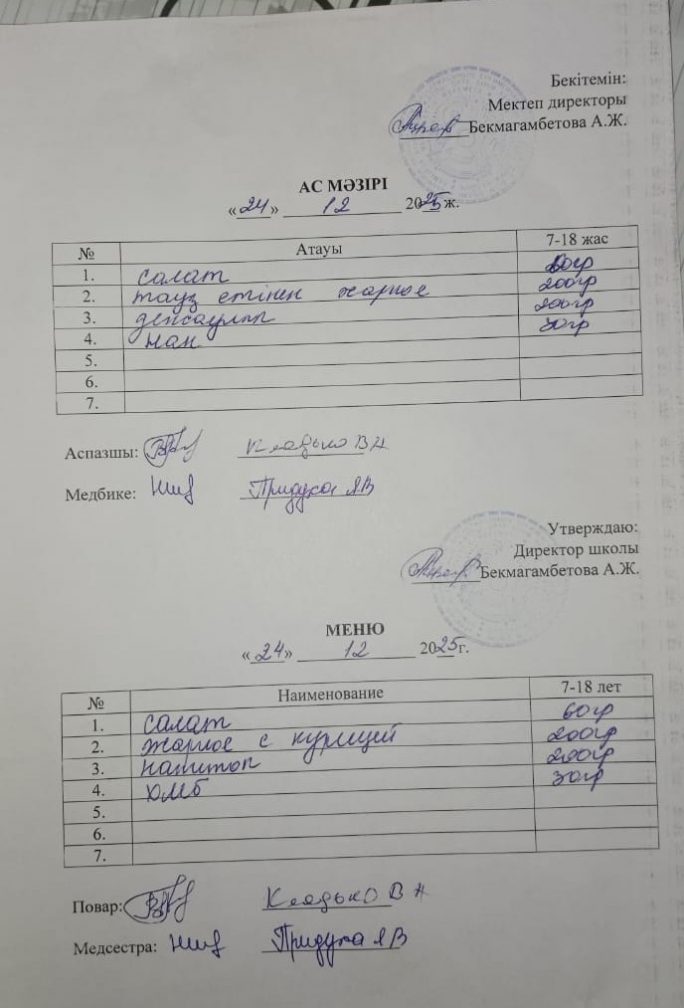 Бекітемін:
Мектеп директоры
Бекмагамбетова А.Ж.
АС МӘЗІРІ
«24» 12 2025 ж.
№ Атауы 7-18 жас
1. салат 60гр
2. тауқ етінен жаркое 200гр
3. 200гр
4. нан 30гр
5.
6.
7.
Аспазшы: Кладько В Н
Медбике: Придуха Я В
Утверждаю:
Директор школы
Бекмагамбетова А.Ж.
МЕНЮ
«24» 12 2025 г.
№ Наименование 7-18 лет
1. салат 60гр
2. жаркое с курицей 200гр
3. напиток 200гр
4. хлеб 30гр
5.
6.
7.
Повар: Кладько В Н
Медсестра: Придуха Я В